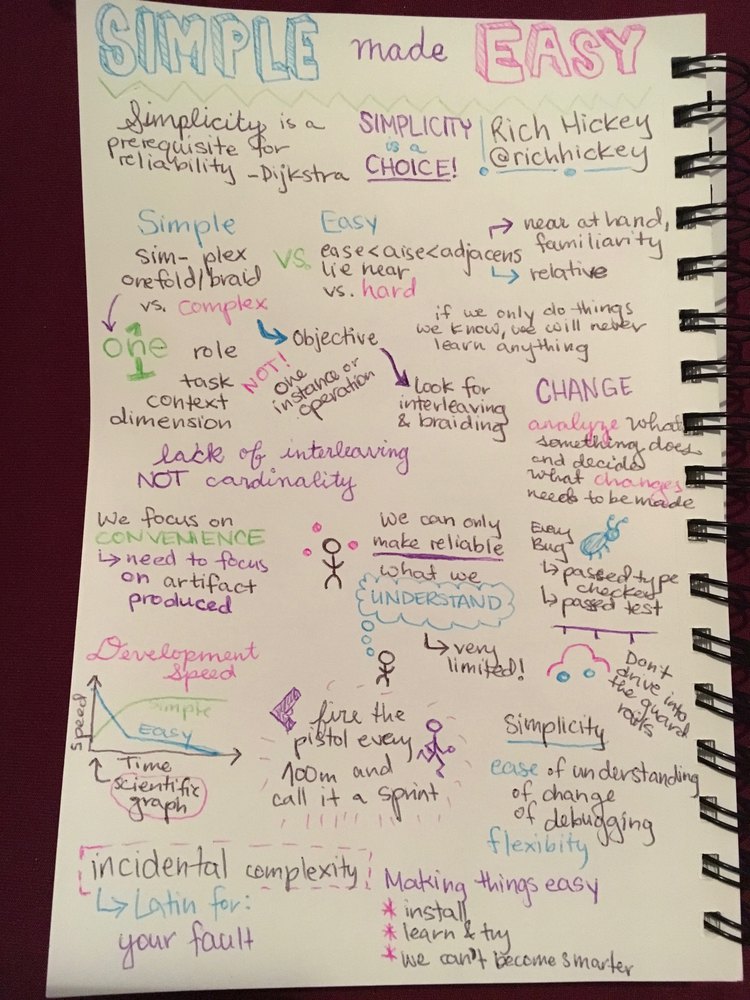 SIMPLE made EASY
Simplicity is a
prerequisite for
reliability -Dijkstra
SIMPLICITY
is a
CHOICE!
Rich Hickey
@richhickey
Simple
sim- plex
onefold/braid
vs. complex
VS.
Easy
ease<aise<adjacens
lie near
vs. hard
near at hand,
familiarity
relative
one role
task
context
dimension
Objective
NOT!
one
instance or
operation
look for
interleaving
& braiding
if we only do things
we know, we will never
learn anything
lack of interleaving
NOT cardinality
CHANGE
analyze what
something does
and decide
what changes
needs to be made
We focus on
CONVENIENCE
need to focus
on artifact
produced
we can only
make reliable
what we
UNDERSTAND
very
limited!
Every
Bug
passed type
checker
passed test
Don't
drive into
the guard
rails
Development
Speed
Speed
Simple
Easy
Time
scientific
graph
fire the
pistol every
100m and
call it a sprint
Simplicity
ease of understanding
of change
of debugging
flexibity
incidental complexity
Latin for:
your fault
Making things easy
* install
* learn & try
* we can't become smarter